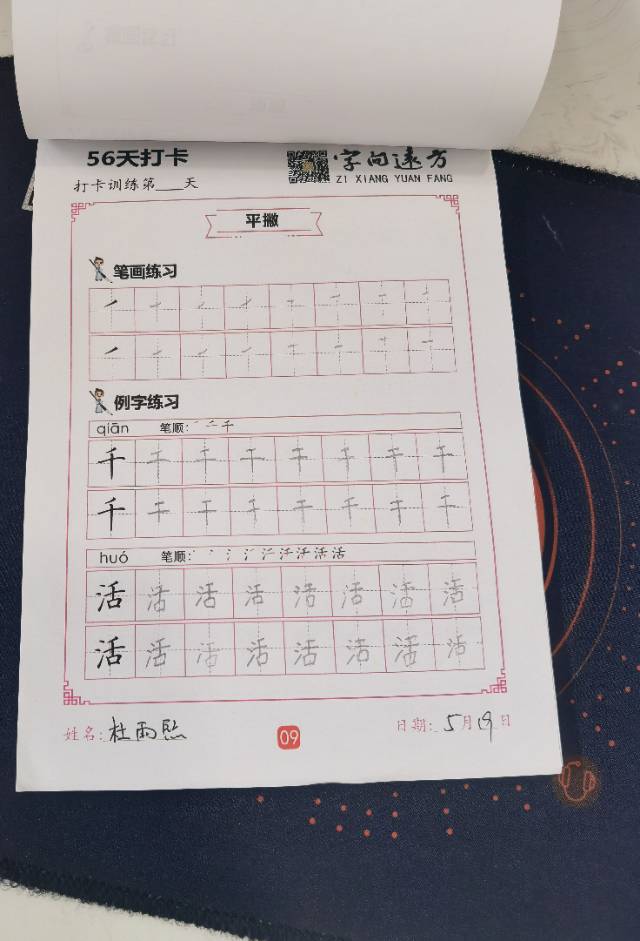 56天打卡
字向遠方
ZI XIANG YUAN FANG
打卡训练第___天
平撇
笔画练习
例字练习
qiān 笔顺: ㇒ 二 千
千 千 千 千 千 千 千 千
千 千 千 千 千 千 千 千
huó 笔顺:
活 活 活 活 活 活 活 活
活 活 活 活 活 活 活 活
姓名: 杜雨熙
09
日期: 5月19日